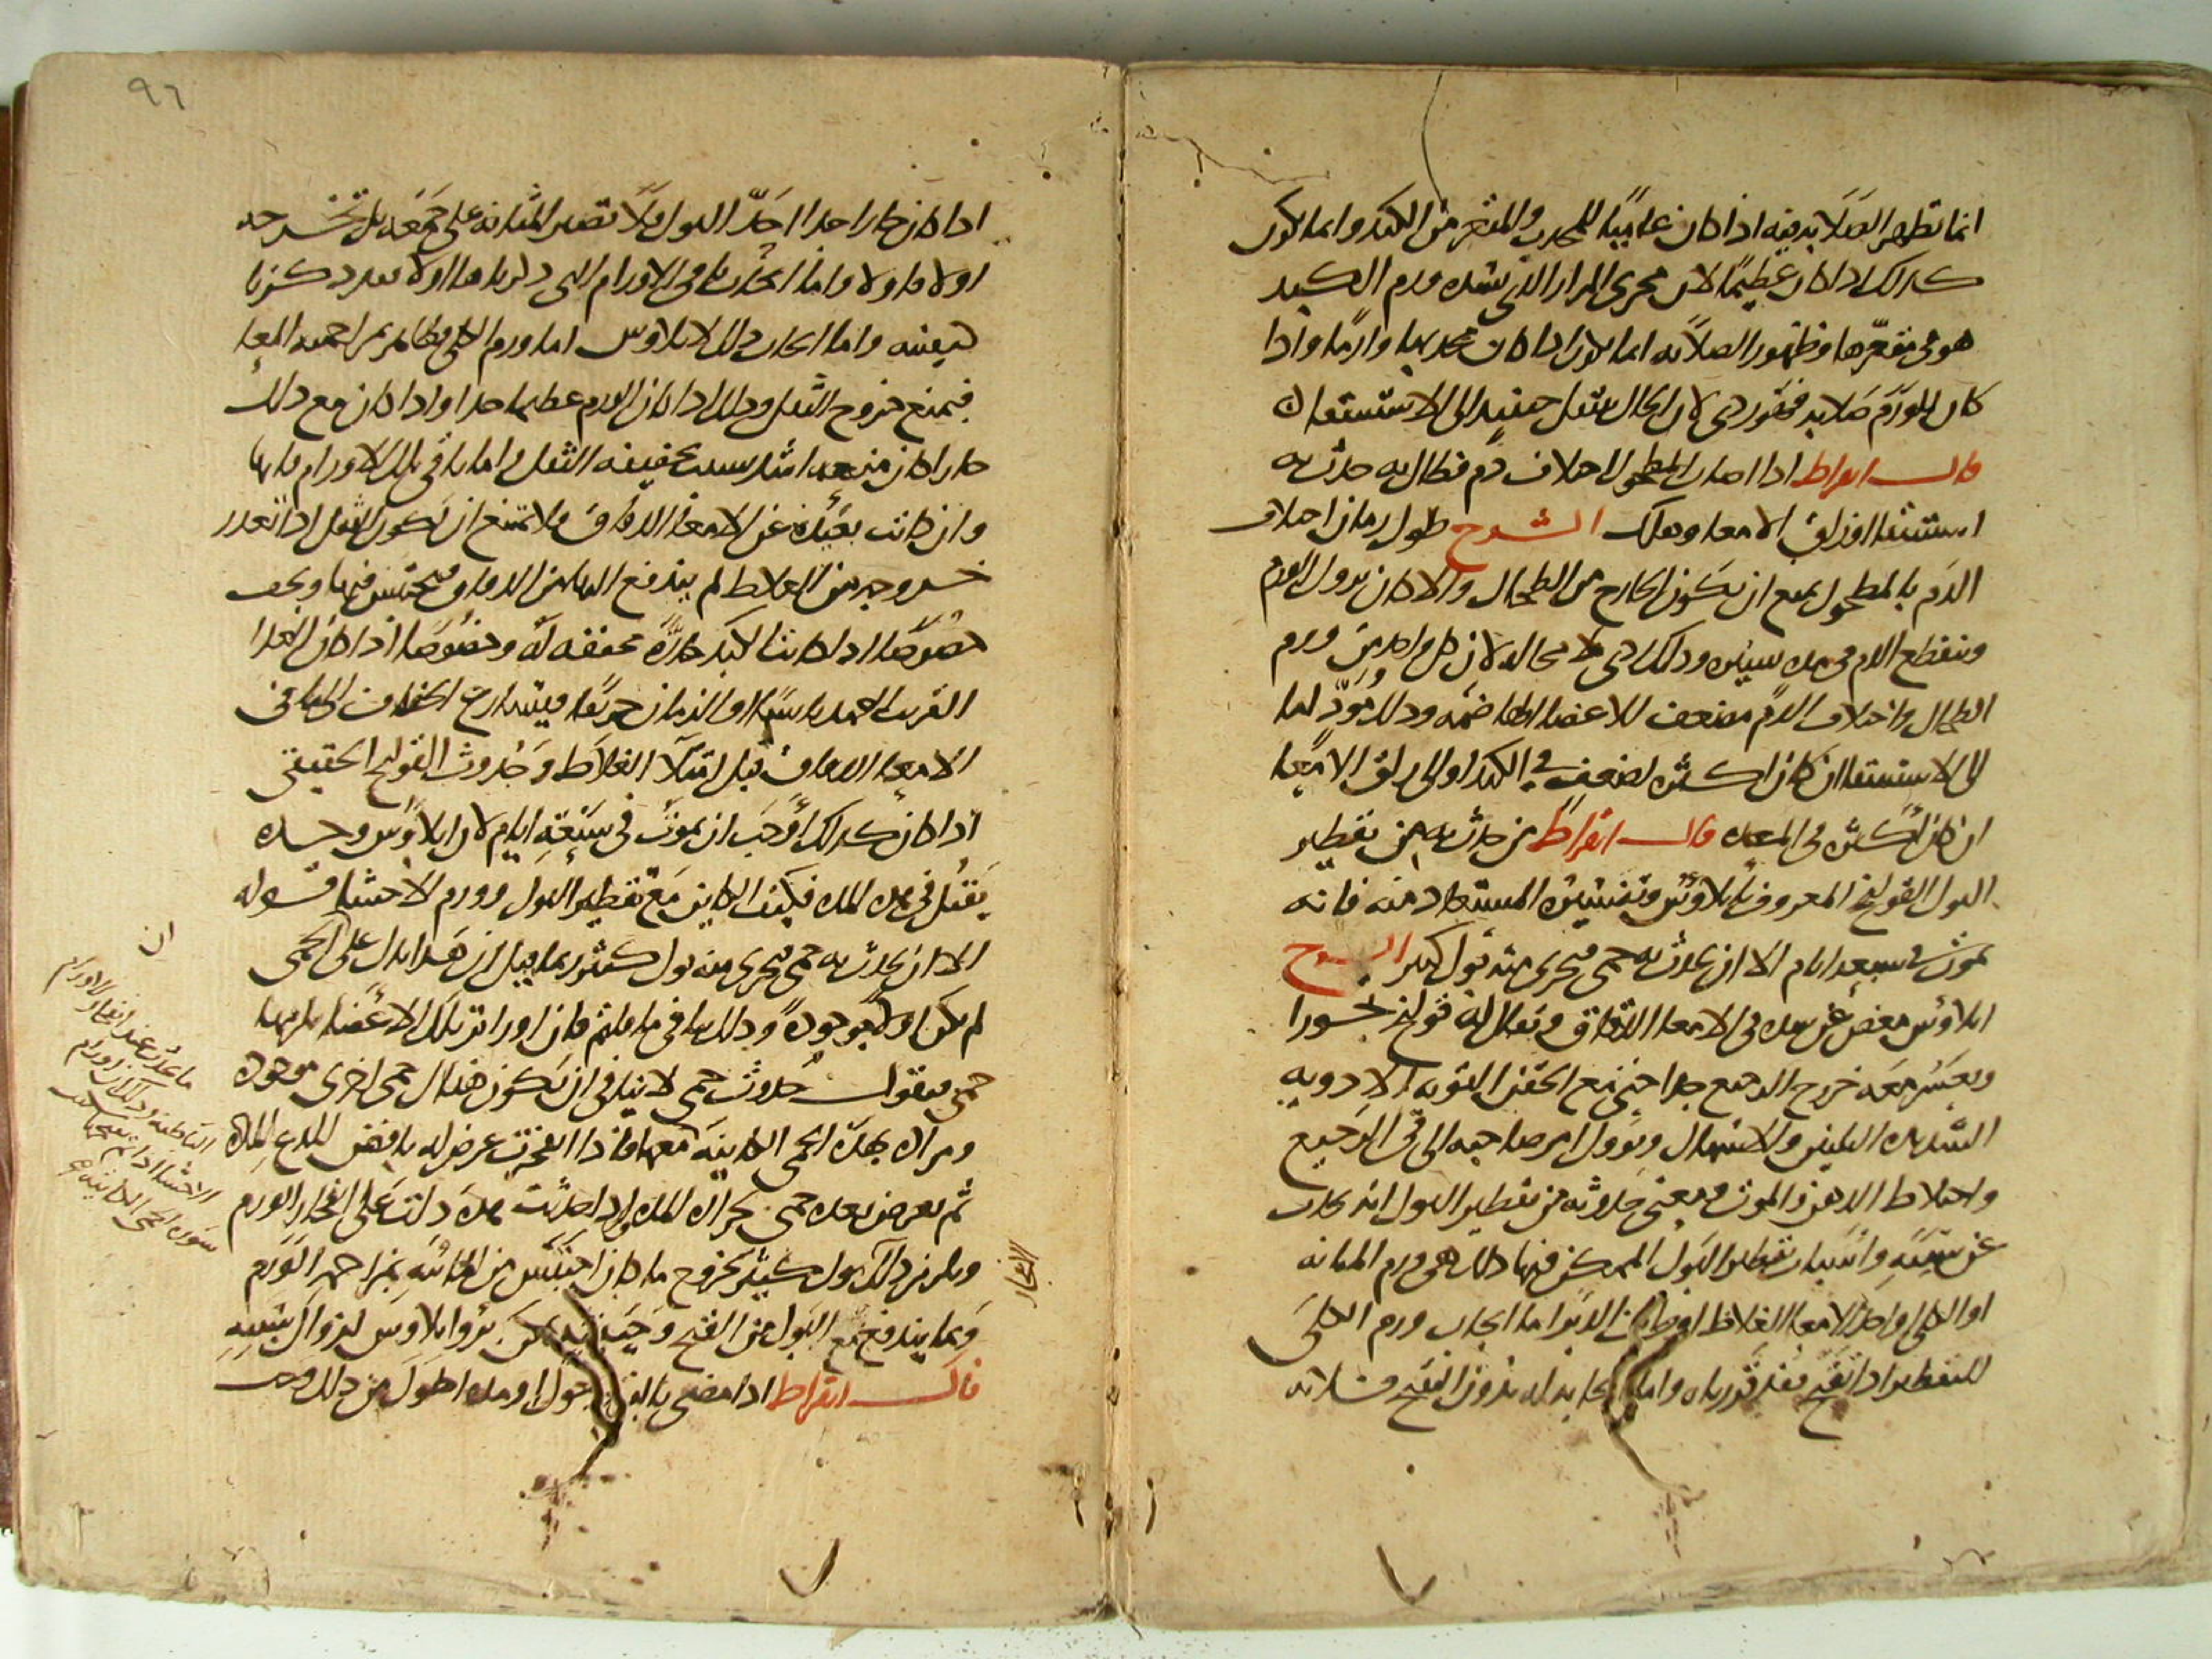 انما تظهر الصلابة فيه اذا كان غالبا للمحدب والمقعر من الكبد وانما يكون
كذلك اذا كان عظيما لان مجرى المرار الذي يسده ورم الكبد
هو في مقعرها وظهور الصلابة انما يكون اذا كان محدبها وارما واذا
كان للورم صلابة فهو ردي لان الحال ينتقل حينئذ الى الاستسقاء
قال ابقراط اذا اصاب المطحول اختلاف دم فطال به حدث به
استسقا او زلق الامعا وهلك الشرح طول زمان اختلاف
الدم بالمطحول يمنع ان يكون الخارج من الطحال والا كان يزول الورم
وينقطع الدم في مدة يسيرة وذلك ردي لا محالة لان كل واحد من ورم
الطحال واختلاف الدم مضعف للاعضا الهاضمة وذلك مؤد اما
الى الاستسقا ان كان اكثره لضعف في الكبد او الى زلق الامعا
ان كان اكثره في المعدة قال ابقراط من حدث به من تقطير
البول القولنج المعروف بايلاوس وتفسيره المستعاد منه فانه
يموت في سبعة ايام الا ان يحدث به حمى فيجري منه بول كثير الشرح
ايلاوس مغص عن سدة في الامعا الدقاق ويقال له قولنج
ويعسر معه خروج الرجيع جدا حتى مع الحقن القوية الادوية
الشديدة التليين والاسهال ويؤول امر صاحبه الى قي الرجيع
واختلاط الذهن والموت ومعنى حدوثه من تقطير البول انه يحدث
عن سببه واسباب تقطير البول الممكن فيها ذلك هي ورم المثانة
او الكلى او احد الامعا الغلاظ او الدبر اما ايجاب ورم الكلى
للتقطير اذا تقيح فقد قررناه واما ايجابه له بدون التقيح فلانه
اذا كان حارا جدا احد البول فلا تصبر المثانة على جمعه بل تخرجه
اولا فاولا واما ايجاب باقي الاورام التي ذكرناها اولا فقد ذكرنا
كيفيته واما ايجاب ذلك لايلاوس اما ورم الكلى فظاهر بمزاحمة المعا
فيمنع خروج الثفل وذلك اذا كان الورم عظيما جدا واذا كان مع ذلك
حارا كان منعه اشد بسبب تجفيفه الثفل واما باقي تلك الاورام فانها
وان كانت بعيدة عن الامعا الدقاق فلا تمنع ان يكون الثفل اذا تعذر
خروجه من الغلاظ لم يندفع اليها من الدقاق فيحتبس فيها ويجف
خصوصا اذا كانت الكبد حارة مجففة له وخصوصا اذا كان الغذا
القريب العهد يابسا او الزمان حريفا فيتسارع الجفاف الى ما في
الامعا الدقاق قبل امتلا الغلاظ وحدوث القولنج الحقيقي
اذا كان كذلك اوجب ان يموت في سبعة ايام لان ايلاوس وحده
يقتل في هذه المدة فكيف الكاين مع تقطير البول وورم الاحشا قوله
الا ان يحدث به حمى فيجري منه بول كثير ربما قيل ان هذا يدل على ان الحمى
لم تكن اولا موجودة وذلك ينافي ما قلتم فان اورام تلك الاعضا يلزمها
حمى فنقول حدوث حمى لا ينافي ان يكون هناك حمى اخرى موجودة
ومراده بهذه الحمى الكاينة معها فاذا انفجرت عرض له نافض للذع المدة
ثم يعرض بعده حمى لحرارة المدة واذا حدثت هذه دلت على انفجار الورم
ويلزم ذلك بول كثير لخروج ما كان احتبس من المائية بمزاحمة الورم
وبما يندفع مع البول من القيح وحينئذ يمكن برؤ ايلاوس لزوال سببه
قال ابقراط اذا مضى بالقرحة حول او مدة اطول من ذلك وجب
ما يحدث عند انفجار الاورام
الباطنة وذلك ان اورام
الاحشا اذا تم نضجها سكنت
سورة الحمى الكاينة
الانفجار
ان
٩٦